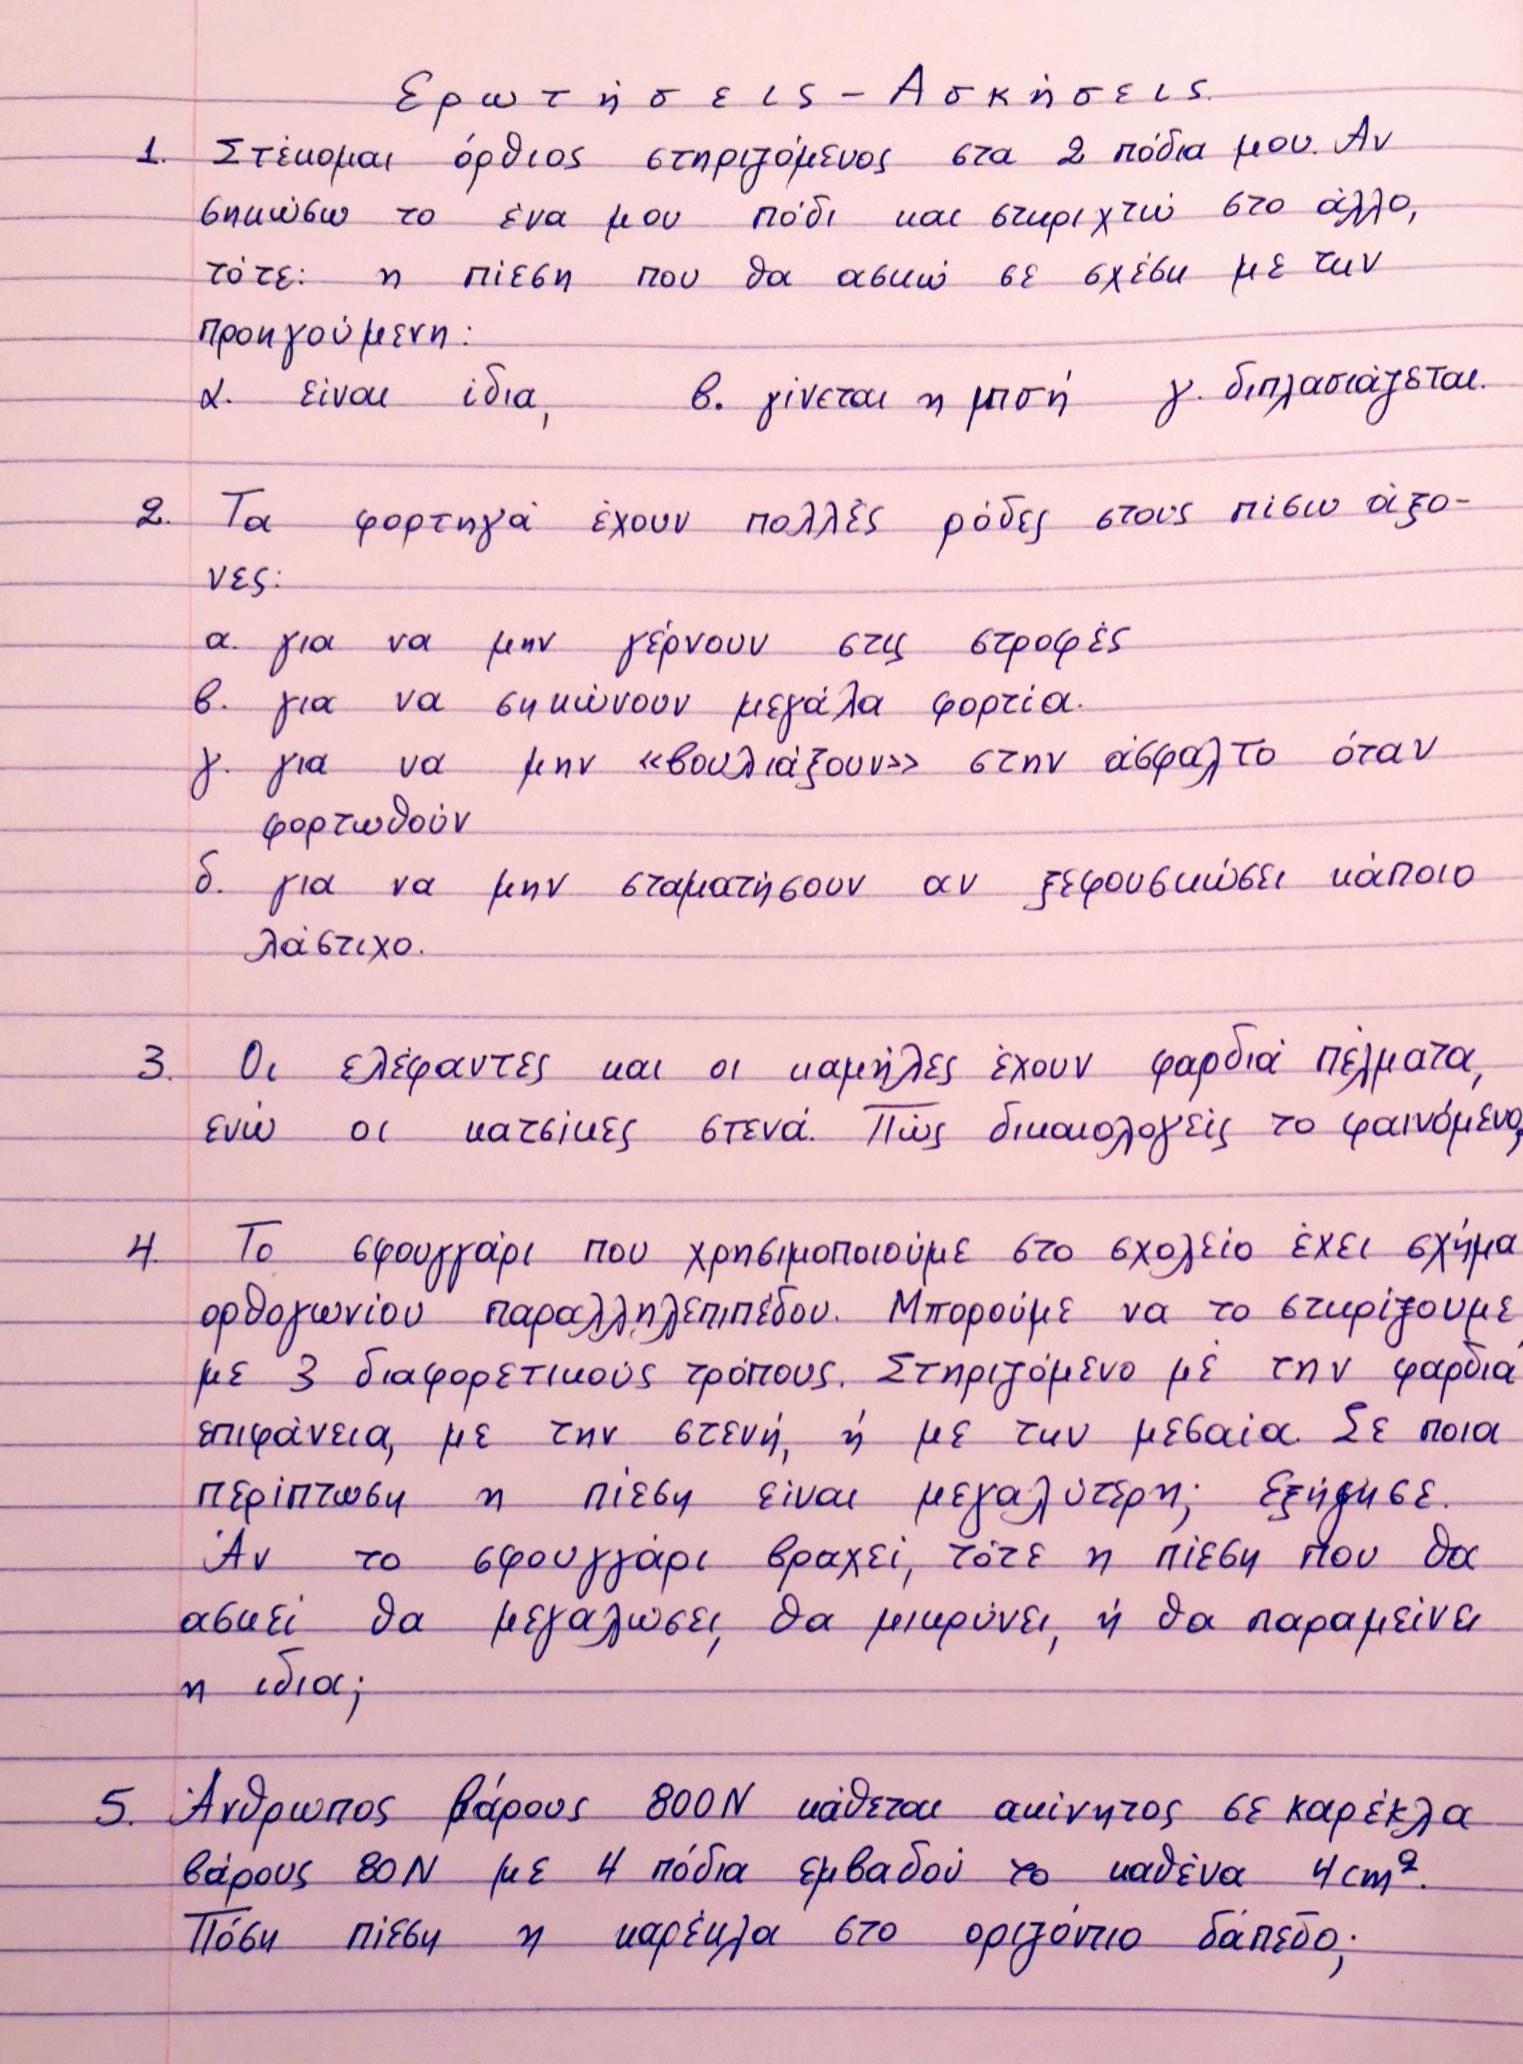 Ερωτήσεις - Ασκήσεις.
1. Στέκομαι όρθιος στηριζόμενος στα 2 πόδια μου. Αν
σηκώσω το ένα μου πόδι και στηριχτώ στο άλλο,
τότε: η πίεση που θα ασκώ σε σχέση με την
προηγούμενη:
α. είναι ίδια, β. γίνεται η μισή γ. διπλασιάζεται.
2. Τα φορτηγά έχουν πολλές ρόδες στους πίσω άξο-
νες:
α. για να μην γέρνουν στις στροφές
β. για να σηκώνουν μεγάλα φορτία.
γ. για να μην «βουλιάξουν» στην άσφαλτο όταν
φορτωθούν
δ. για να μην σταματήσουν αν ξεφουσκώσει κάποιο
λάστιχο.
3. Οι ελέφαντες και οι καμήλες έχουν φαρδιά πέλματα,
ενώ οι κατσίκες στενά. Πώς δικαιολογείς το φαινόμενο;
4. Το σφουγγάρι που χρησιμοποιούμε στο σχολείο έχει σχήμα
ορθογωνίου παραλληλεπιπέδου. Μπορούμε να το στηρίξουμε
με 3 διαφορετικούς τρόπους. Στηριζόμενο με την φαρδιά
επιφάνεια, με την στενή, ή με την μεσαία. Σε ποια
περίπτωση η πίεση είναι μεγαλύτερη; Εξήγησε.
Αν το σφουγγάρι βραχεί, τότε η πίεση που θα
ασκεί θα μεγαλώσει, θα μικρύνει, ή θα παραμείνει
η ίδια;
5. Άνθρωπος βάρους 800N κάθεται ακίνητος σε καρέκλα
βάρους 80N με 4 πόδια εμβαδού το καθένα 4cm².
Πόση πίεση η καρέκλα στο οριζόντιο δάπεδο;